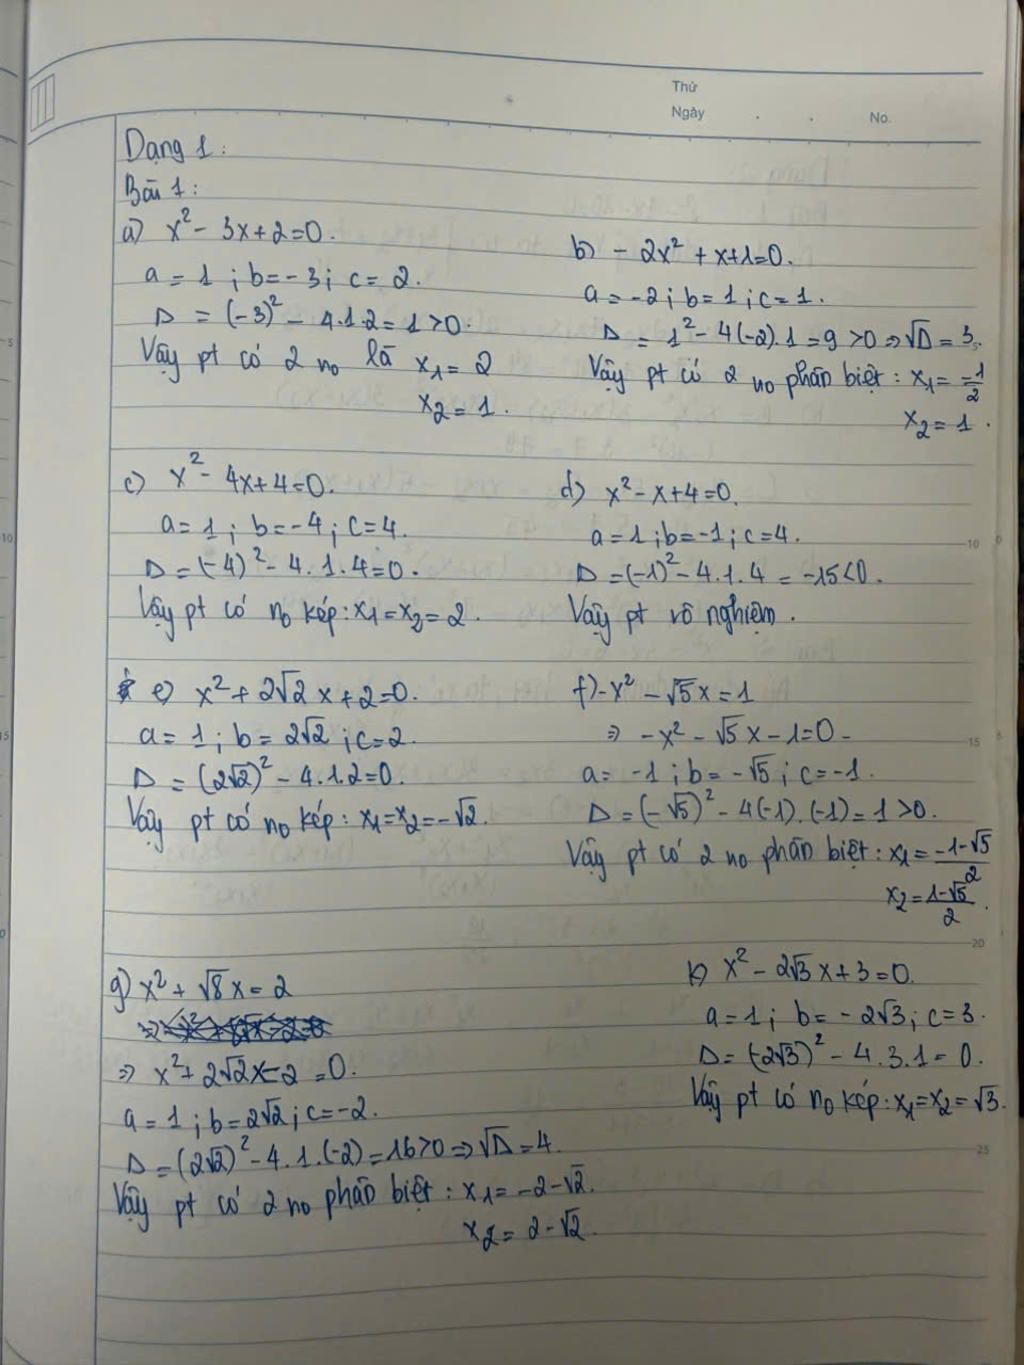 Thứ
Ngày . . No.
Dạng 1:
Bài 1:
a) x² - 3x + 2 = 0.
a = 1 ; b = -3 ; c = 2.
Δ = (-3)² - 4.1.2 = 1 > 0.
Vậy pt có 2 no là x₁ = 2
x₂ = 1.
b) - 2x² + x + 1 = 0.
a = -2 ; b = 1 ; c = 1.
Δ = 1² - 4(-2).1 = 9 > 0 ⇒ √Δ = 3.
Vậy pt có 2 no phân biệt : x₁ = -1/2
x₂ = 1.
c) x² - 4x + 4 = 0.
a = 1 ; b = -4 ; c = 4.
Δ = (-4)² - 4.1.4 = 0.
Vậy pt có no kép : x₁ = x₂ = 2.
d) x² - x + 4 = 0.
a = 1 ; b = -1 ; c = 4.
Δ = (-1)² - 4.1.4 = -15 < 0.
Vậy pt vô nghiệm.
e) x² + 2√2x + 2 = 0.
a = 1 ; b = 2√2 ; c = 2.
Δ = (2√2)² - 4.1.2 = 0.
Vậy pt có no kép : x₁ = x₂ = -√2.
f) -x² - √5x = 1
⇒ -x² - √5x - 1 = 0 -
a = -1 ; b = -√5 ; c = -1.
Δ = (-√5)² - 4(-1).(-1) = 1 > 0.
Vậy pt có 2 no phân biệt : x₁ = (-1-√5)/2
x₂ = (1-√5)/2.
g) x² + √8x = 2
⇒ x² + 2√2x - 2 = 0.
a = 1 ; b = 2√2 ; c = -2.
Δ = (2√2)² - 4.1.(-2) = 16 > 0 ⇒ √Δ = 4.
Vậy pt có 2 no phân biệt : x₁ = -2 - √2.
x₂ = 2 - √2.
k) x² - 2√3x + 3 = 0.
a = 1 ; b = -2√3 ; c = 3.
Δ = (-2√3)² - 4.3.1 = 0.
Vậy pt có no kép : x₁ = x₂ = √3.
5
10
10
15
15
20
25